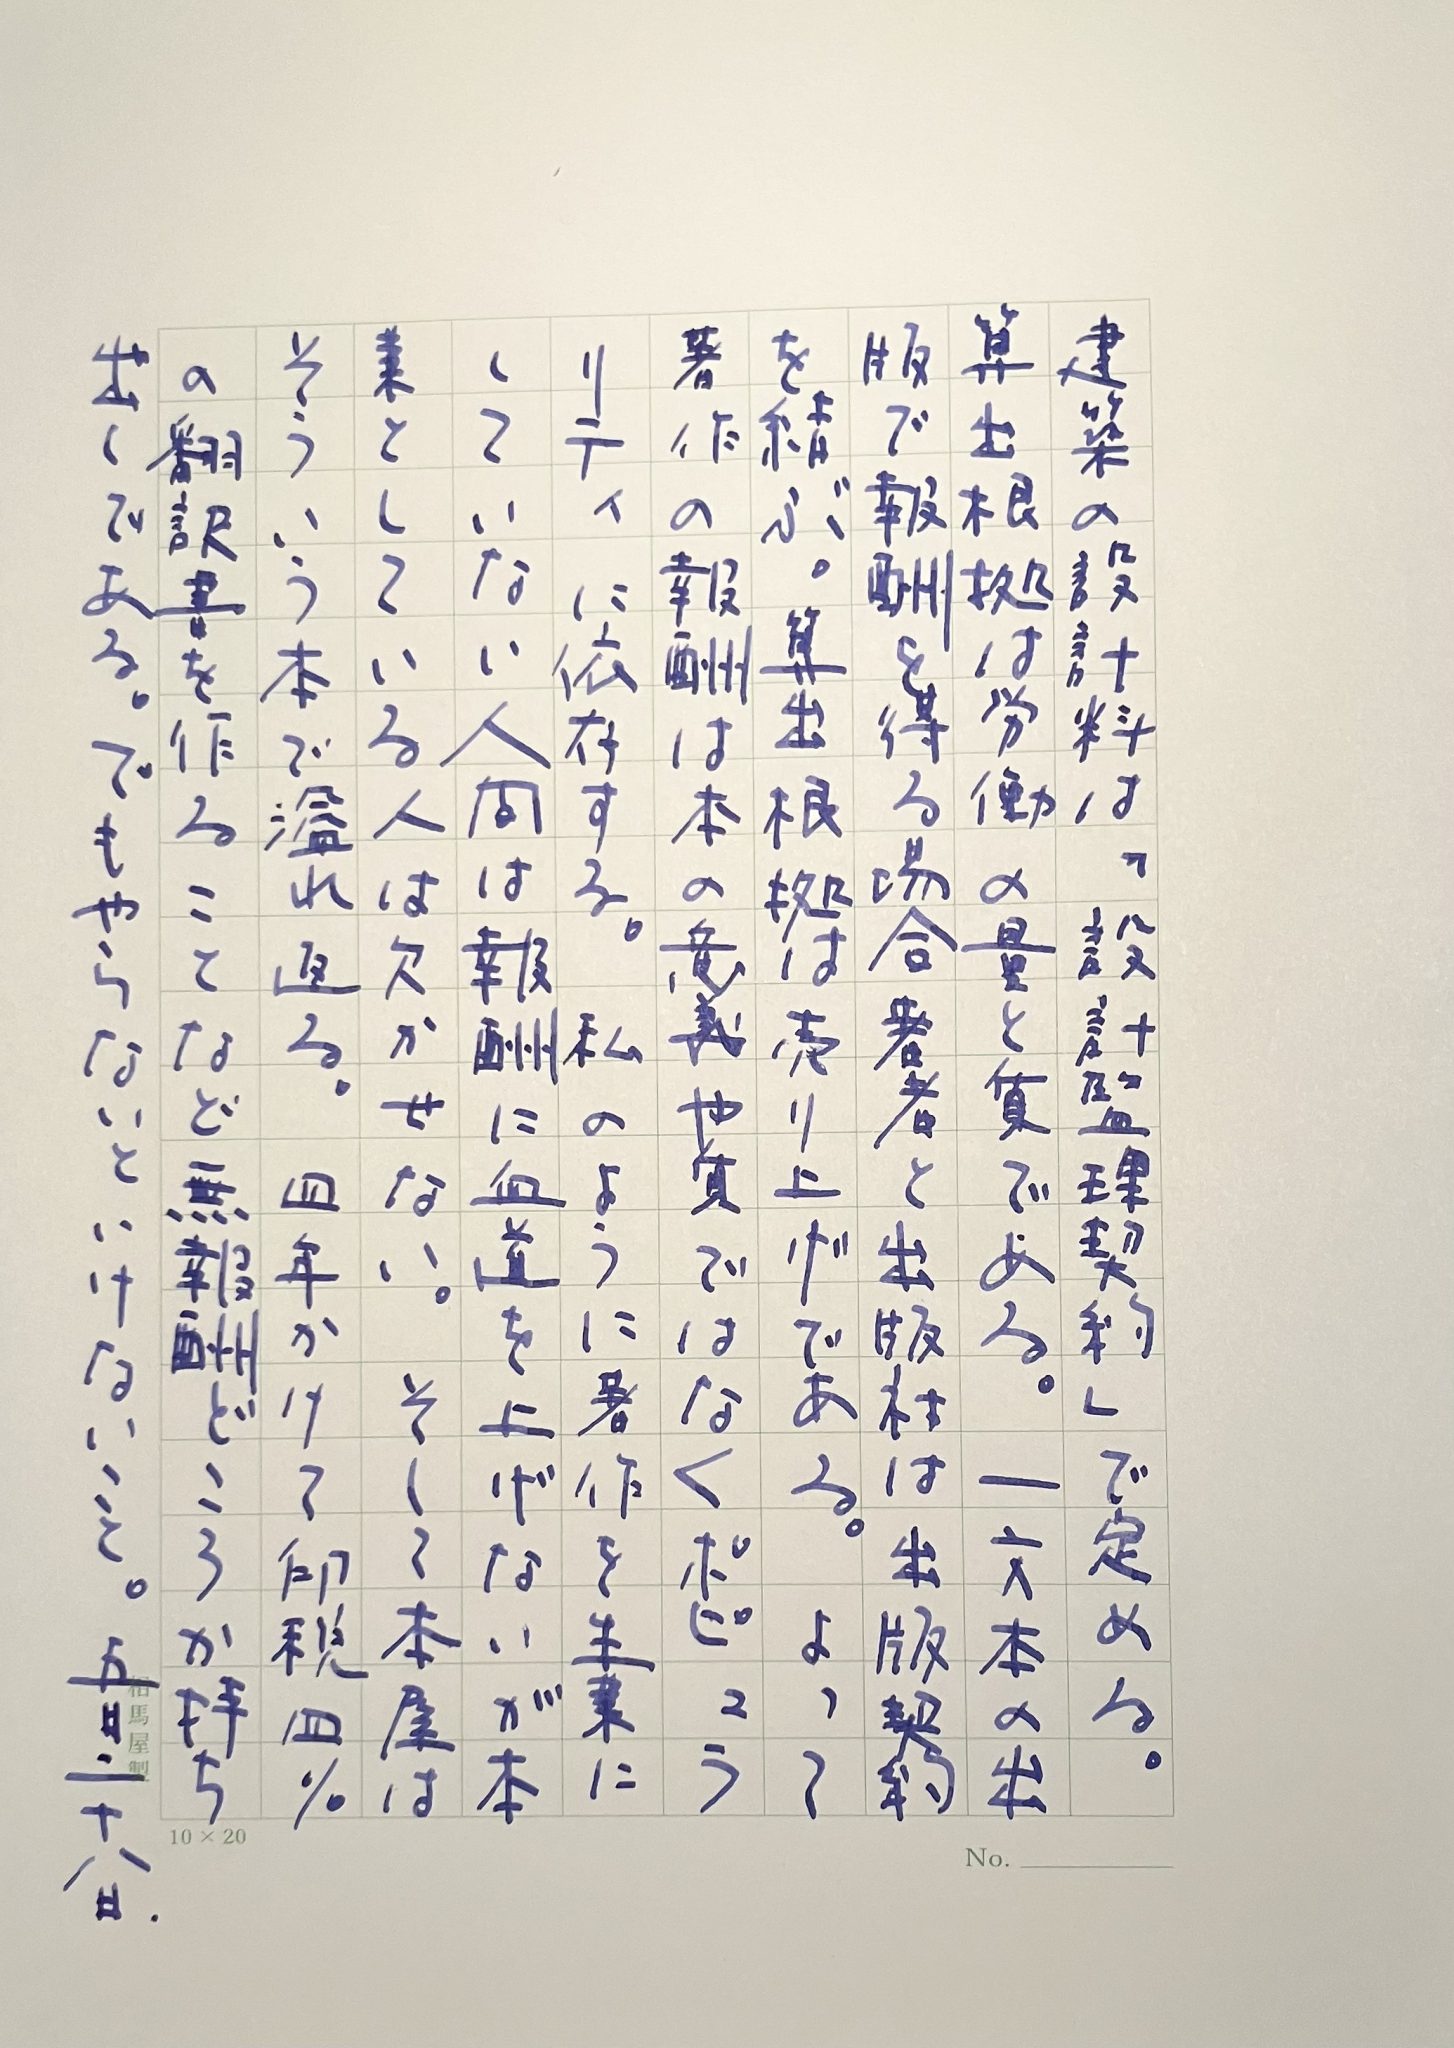 建築の設計料は「設計監理契約」で定める。
算出根拠は労働の量と質である。一方本の出
版で報酬を得る場合著者と出版社は出版契約
を結ぶ。算出根拠は売り上げである。よって
著作の報酬は本の意義や質ではなくポピュラ
リティに依存する。私のように著作を生業に
していない人間は報酬に血道を上げないが本
業としている人は欠かせない。そして本屋は
そういう本で溢れ返る。四年かけて印税四%
の翻訳書を作ることなど無報酬どころか持ち
出しである。でもやらないといけないこと。五月二十八日.
相馬屋製
10×20
No.